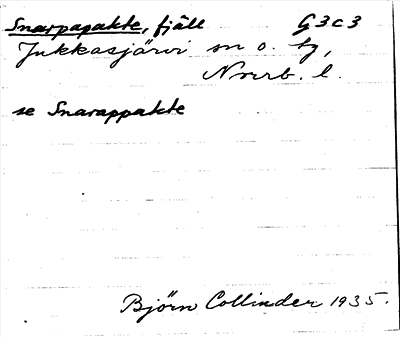 Snarpapakte, fjäll G3c3
Jukkasjärvi sn o. tg,
Nrrb. l.
se Snarappakte
Björn Collinder 1935.